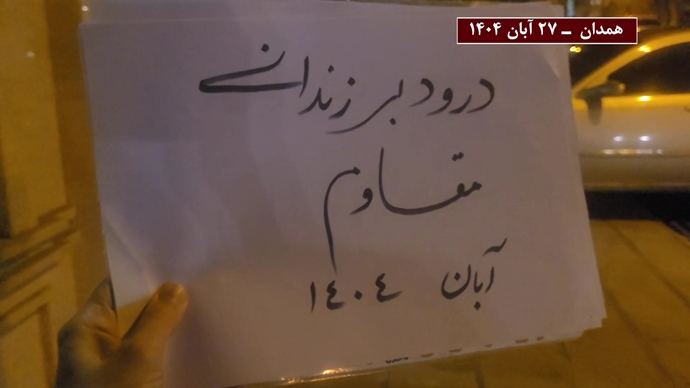 همدان – ۲۷ آبان ۱۴۰۴
درود بر زندانی
مقاوم
آبان ۱۴۰۴